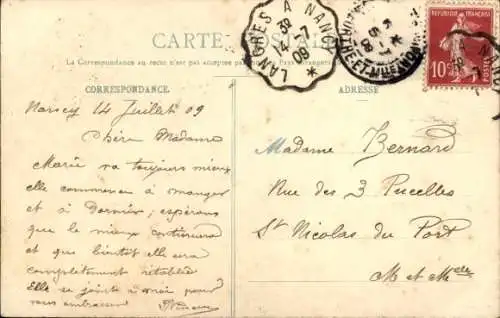 CARTE POSTALE
La Correspondance au recto n'est pas acceptée par
CORRESPONDANCE
ADRESSE
LANGRES A NANCY
14-7
09
REPUBLIQUE FRANÇAISE
10
Nancy 14 Juillet 09
Chère Madame
Marie va toujours mieux
elle commence à manger
et à Dormir; espérons
que le mieux continuera
et que bientôt elle sera
complètement rétablie
Elle se joint à moi pour
vous embrasser
Madame Bernard
Rue des 3 Pucelles
St Nicolas du Port
M et Mlle